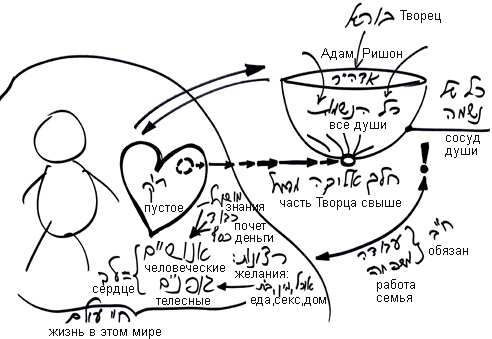 בורא Творец
Адам Ришон
אדה״ר
כל הנשמות
все души
כלי של
נשמה
сосуд
души
חלק אלוקה ממעל
часть Творца свыше
!
ריק
пустое
מושכל
знания
כבוד
почет
כסף
деньги
אנושיים
человеческие
לב =
сердце
גופניים
телесные
רצונות:
желания:
אוכל, מין, בית
еда,секс,дом
חיי עולם
жизнь в этом мире
ח״ב
обязан
עבודה
משפחה
работа
семья